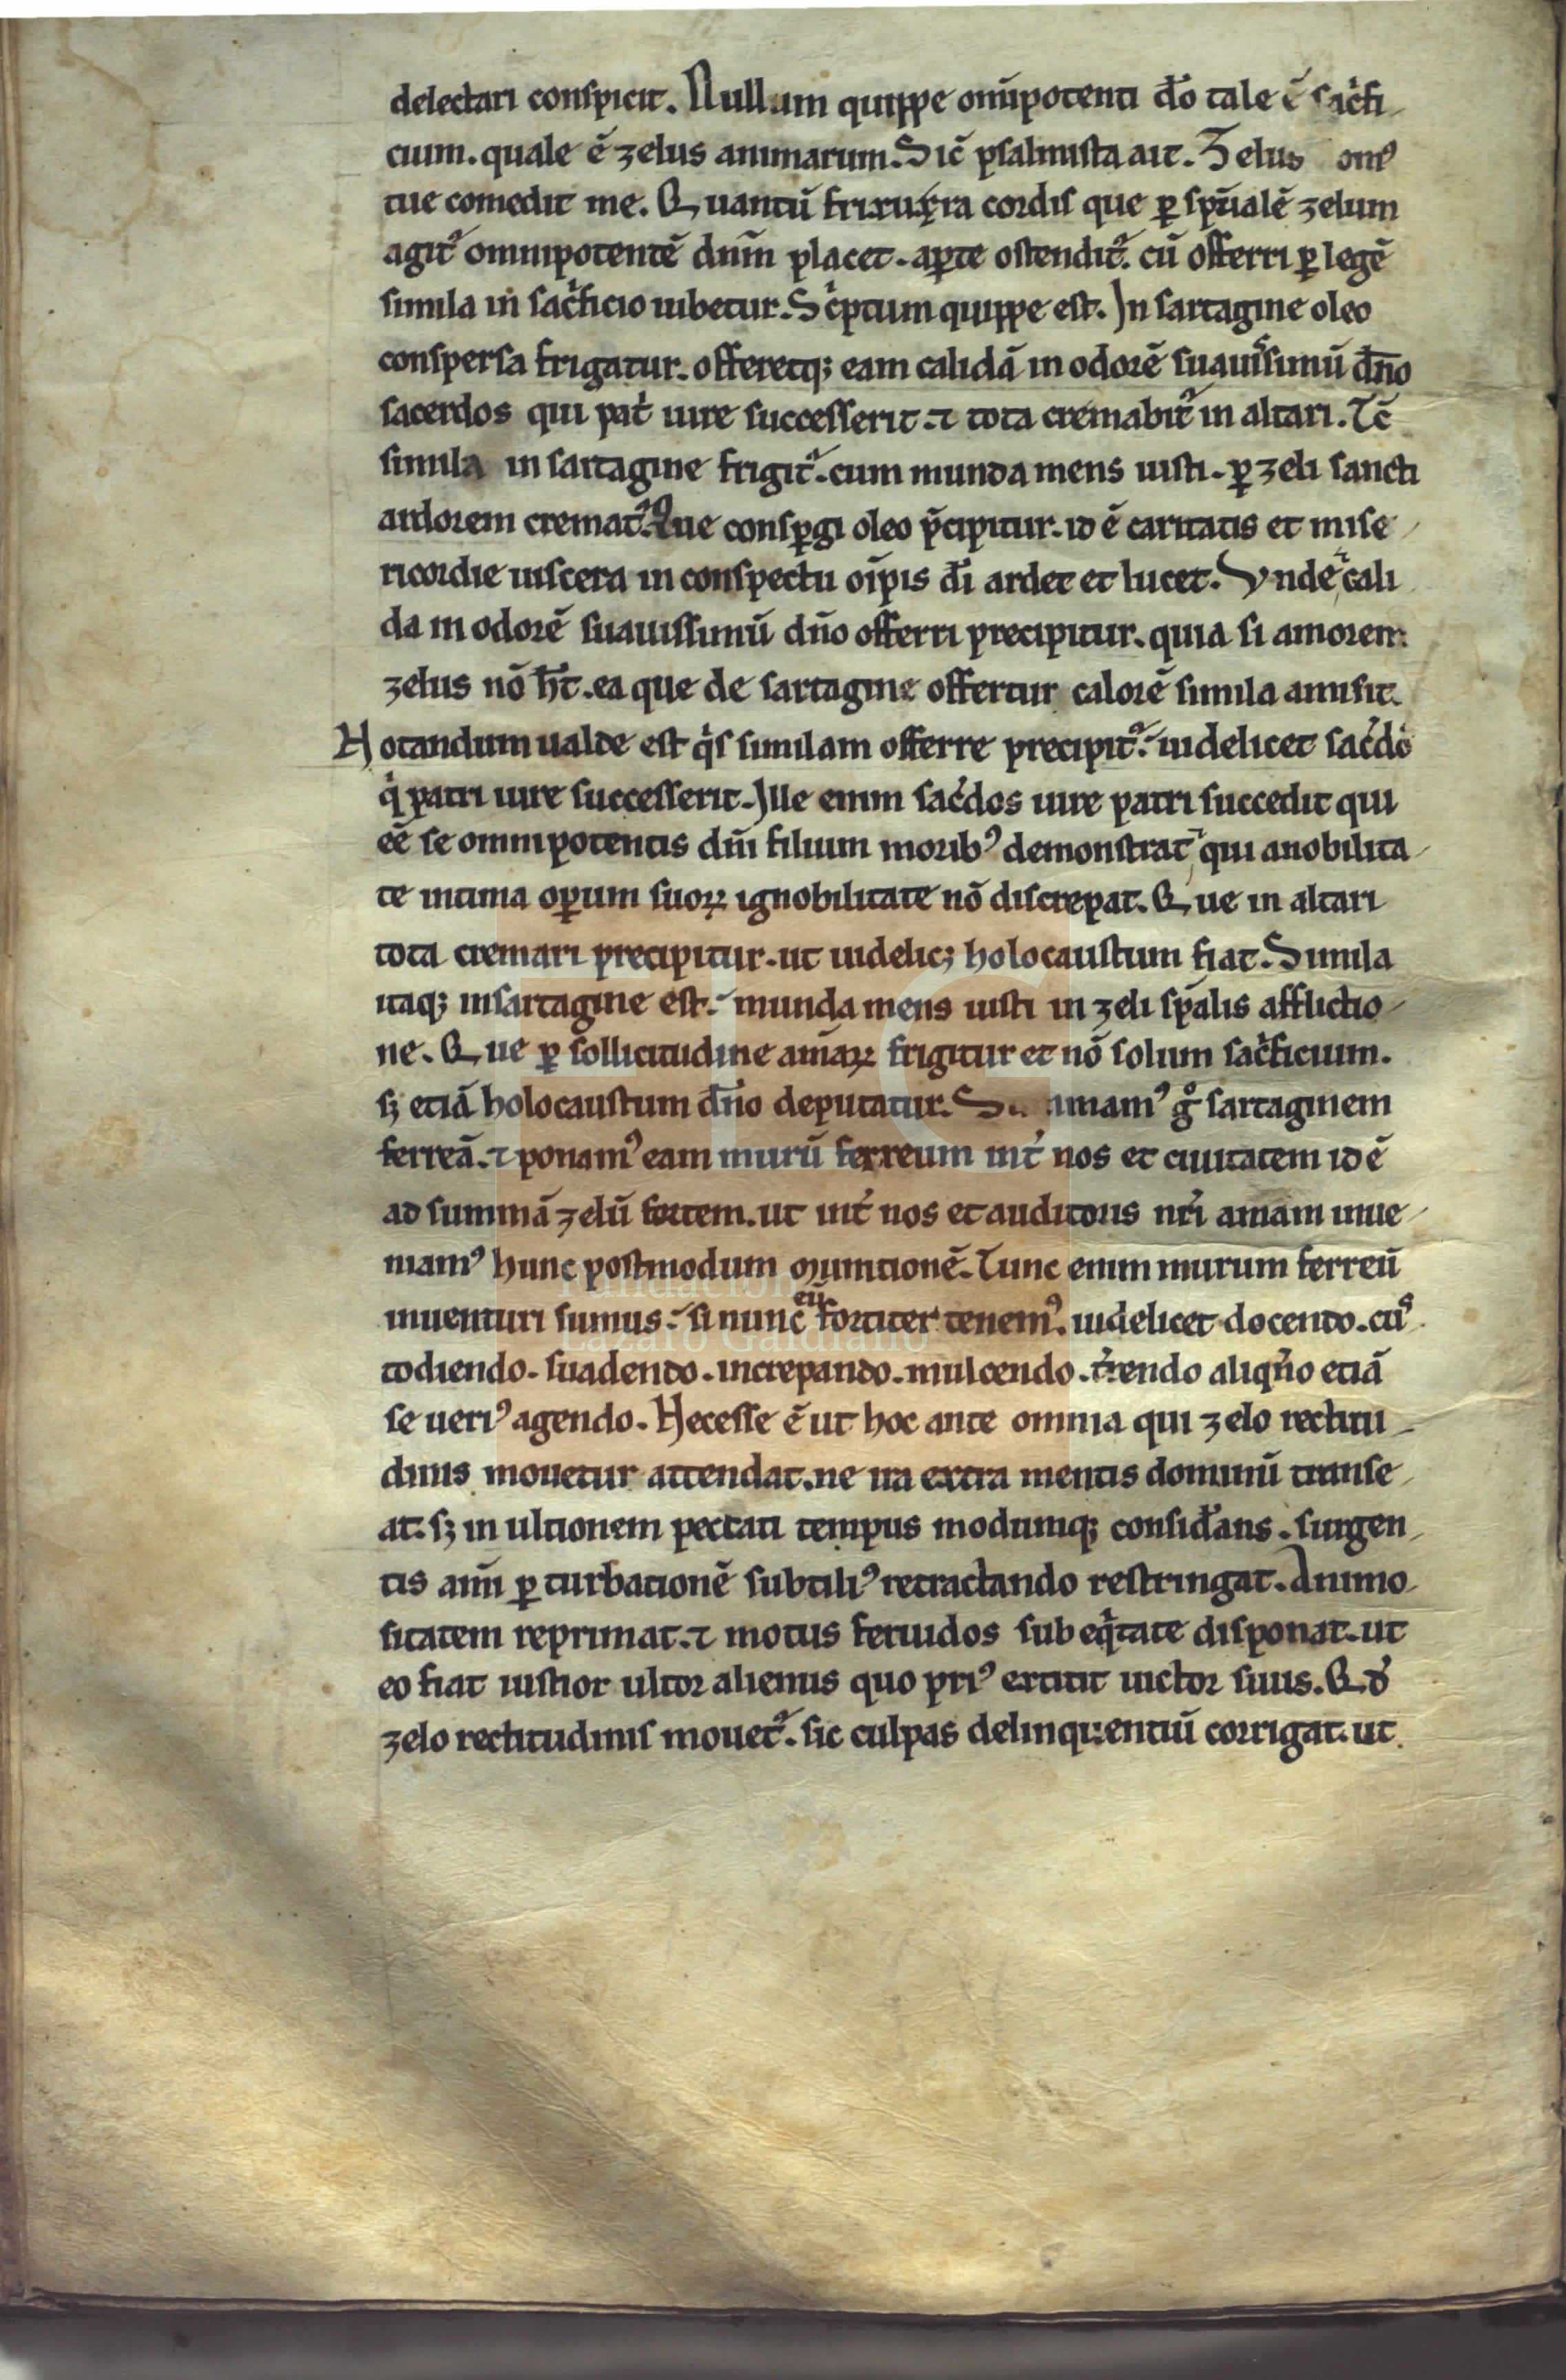 delectari conspicit. Nullum quippe omīpotenti dō tale ē sac̓fi
cium. quale ē zelus animarum. Sic̄ psalmista ait. Zelus om᷒
tue comedit me. Quantū frixura cordis que ꝑ sp̄ualē zelum
agit᷑ omnipotentē dn̄m placet. aꝑte ostendit᷑. cū offerri ꝑ legē
simila in sac̓ficio iubetur. Sc̓ptum quippe est. In sartagine oleo
conspersa frigatur. offeretq; eam calidā in odorē suauissimū dn̄o
sacerdos qui pat̓ iure successerit. ⁊ tota cremabit᷑ in altari. Tc̄
simila in sartagine frigit᷑. cum munda mens iusti. ꝑ zeli sancti
ardorem cremat᷑. Que consꝑgi oleo p̄cipitur. id ē caritatis et mise
ricordie uiscera in conspectu oīpis dī ardet et lucet. Vnde ⁊ cali
da in odorē suauissimū dn̄o offerri precipitur. quia si amorem
zelus nō ht̄. ea que de sartagine offertur calorē simila amisit.
Notandum ualde est q̓s similam offerre precipit᷑. uidelicet sac̓dos
q̓ patri iure successerit. Ille enim sac̓dos iure patri succedit qui
eē se omnipotentis dn̄i filium morib᷒ demonstrat qui a nobilita
te intima oꝑum suoꝝ ignobilitate nō discrepat. Que in altari
tota cremari precipitur. ut uidelic; holocaustum fiat. Simila
itaq; in sartagine est. munda mens iusti in zeli sp̄alis afflictio
ne. Que ꝑ sollicitudine am̄aꝝ frigitur et nō solum sac̓ficium.
s; etiā holocaustum dn̄o deputatur. Su mam᷒ gͦ sartaginem
ferreā. ⁊ ponam᷒ eam murū ferreum int̓ nos et ciuitatem id ē
ad summā zelū fortem. ut int̓ nos et auditoris nr̄i amam inue
niam᷒ hunc postmodum munitionē. Tunc enim murum ferreū
inuenturi sumus. si nunc eū fortiter tenem᷒. uidelicet docendo. cus᷒
todiendo. suadendo. increpando. mulcendo. t̓rendo aliqn̄o etiā
se ueri᷒ agendo. Necesse ē ut hoc ante omnia qui zelo rectitu
dinis mouetur attendat. ne ira extra mentis dominiū transe
at. s; in ultionem peccati tempus modumq; consid̓ans. surgen
tis anīm ꝑturbationē subtili᷒ retractando restringat. Animo
sitatem reprimat. ⁊ motus feruidos sub eq̓tate disponat. ut
eo fiat iustior ultor alienus quo pri᷒ extitit uictor suus. Qd̓
zelo rectitudinis mouet᷑. sic culpas delinquentiū corrigat. ut
Fundación
Lázaro Galdiano